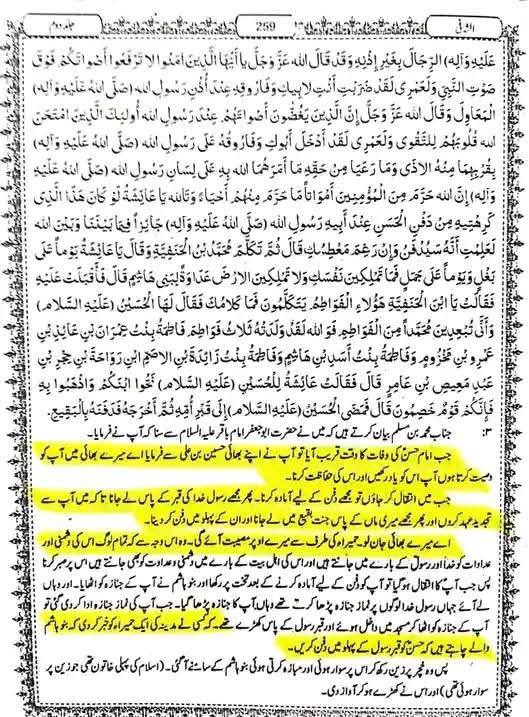 الشافی 259 جلد دوم
عَلَيْهِ وَآلِهِ) الرِّجَالَ بِغَيْرِ إِذْنِهِ وَقَدْ قَالَ اللهُ عَزَّ وَجَلَّ يَا أَيُّهَا الَّذِينَ آمَنُوا لَا تَرْفَعُوا أَصْوَاتَكُمْ فَوْقَ
صَوْتِ النَّبِيِّ وَلَعَمْرِي لَقَدْ ضَرَبْتِ أَنْتِ لِأَبِيكِ وَفَارُوقِهِ عِنْدَ أُذُنِ رَسُولِ اللهِ (صَلَّى اللهُ عَلَيْهِ وَآلِهِ)
الْمَعَاوِلَ وَقَالَ اللهُ عَزَّ وَجَلَّ إِنَّ الَّذِينَ يَغُضُّونَ أَصْوَاتَهُمْ عِنْدَ رَسُولِ اللهِ أُولَئِكَ الَّذِينَ امْتَحَنَ
اللهُ قُلُوبَهُمْ لِلتَّقْوَى وَلَعَمْرِي لَقَدْ أَدْخَلَ أَبُوكِ وَفَارُوقُهُ عَلَى رَسُولِ اللهِ (صَلَّى اللهُ عَلَيْهِ وَآلِهِ)
بِقُرْبِهِمَا مِنْهُ الْأَذَى وَمَا رَعَيَا مِنْ حَقِّهِ مَا أَمَرَهُمَا اللهُ بِهِ عَلَى لِسَانِ رَسُولِ اللهِ (صَلَّى اللهُ عَلَيْهِ
وَآلِهِ) إِنَّ اللهَ حَرَّمَ مِنَ الْمُؤْمِنِينَ أَمْوَاتاً مَا حَرَّمَ مِنْهُمْ أَحْيَاءً وَتَاللهِ يَا عَائِشَةُ لَوْ كَانَ هَذَا الَّذِي
كَرِهْتِيهِ مِنْ دَفْنِ الْحَسَنِ عِنْدَ أَبِيهِ رَسُولِ اللهِ (صَلَّى اللهُ عَلَيْهِ وَآلِهِ) جَائِزاً فِيمَا بَيْنَنَا وَبَيْنَ اللهِ
لَعَلِمْتِ أَنَّهُ سَيُدْفَنُ وَإِنْ رَغِمَ مَعْطِسُكِ قَالَ ثُمَّ تَكَلَّمَ مُحَمَّدُ بْنُ الْحَنَفِيَّةِ وَقَالَ يَا عَائِشَةُ يَوْماً عَلَى
بَغْلٍ وَيَوْماً عَلَى جَمَلٍ فَمَا تَمْلِكِينَ نَفْسَكِ وَلَا تَمْلِكِينَ الْأَرْضَ عَدَاوَةً لِبَنِي هَاشِمٍ قَالَ فَأَقْبَلَتْ عَلَيْهِ
فَقَالَتْ يَا ابْنَ الْحَنَفِيَّةِ هَؤُلَاءِ الْفَوَاطِمُ يَتَكَلَّمُونَ فَمَا كَلَامُكَ فَقَالَ لَهَا الْحُسَيْنُ (عَلَيْهِ السَّلَام)
وَأَنَّى تُبْعِدِينَ مُحَمَّداً مِنَ الْفَوَاطِمِ فَوَ اللهِ لَقَدْ وَلَدَتْهُ ثَلَاثُ فَوَاطِمَ فَاطِمَةُ بِنْتُ عِمْرَانَ بْنِ عَائِذِ بْنِ
عَمْرِو بْنِ مَخْزُومٍ وَفَاطِمَةُ بِنْتُ أَسَدِ بْنِ هَاشِمٍ وَفَاطِمَةُ بِنْتُ زَائِدَةَ بْنِ الْأَصَمِّ ابْنِ رَوَاحَةَ بْنِ حِجْرِ بْنِ
عَبْدِ مَعِيصِ بْنِ عَامِرٍ قَالَ فَقَالَتْ عَائِشَةُ لِلْحُسَيْنِ (عَلَيْهِ السَّلَام) نَحُّوا ابْنَكُمْ وَاذْهَبُوا بِهِ
فَإِنَّكُمْ قَوْمٌ خَصِمُونَ قَالَ فَمَضَى الْحُسَيْنُ (عَلَيْهِ السَّلَام) إِلَى قَبْرِ أُمِّهِ ثُمَّ أَخْرَجَهُ فَدَفَنَهُ بِالْبَقِيعِ.
۳: جناب محمد بن مسلم بیان کرتے ہیں کہ میں نے حضرت ابو جعفر امام باقر علیہ السلام سے سنا کہ آپ نے فرمایا۔
جب امام حسنؑ کی وفات کا وقت قریب آیا تو آپ نے اپنے بھائی حسین بن علی سے فرمایا اے میرے بھائی میں آپ کو
وصیت کرتا ہوں آپ اس کو یاد رکھیں اور اس کی حفاظت کرنا۔
جب میں انتقال کر جاؤں تو مجھے دفن کے لیے آمادہ کرنا۔ پھر مجھے رسول خدا کی قبر کے پاس لے جانا تا کہ میں آپ سے
تجدید عہد کروں اور پھر مجھے میری ماں کے پاس جنت بقیع میں لے جانا اور ان کے پہلو میں دفن کر دینا۔
اے میرے بھائی جان لو۔ حمیراء کی طرف سے میرے اوپر مصیبت آئے گی۔ وہ اس وجہ سے کہ تمام لوگ اس کی دشمنی اور
عداوت کو خدا اور رسول کے بارے میں جانتے ہیں اور اس کی اہل بیت کے بارے میں دشمنی و عداوت کو بھی جانتے ہیں اس پر صبر کرنا
پس جب آپ کا انتقال ہو گیا تو آپ کو دفن کے لیے آمادہ کرنے کے بعد تخت پر رکھا اور بنو ہاشم نے آپ کے جنازہ کو اٹھایا۔ اور وہاں
لے آئے جہاں رسول خدا لوگوں پر نماز جنازہ پڑھا کرتے تھے وہاں آپ کا جنازہ پڑھا گیا۔ جب آپ کی نماز جنازہ ادا کر دی گئی تو
آپ کے جنازہ کو اٹھا کر مسجد میں داخل ہوئے اور قبر رسول کے پاس کھڑے تھے۔ کہ کسی نے مدینہ کی ایک حمیراء کو خبر کر دی کہ بنو ہاشم
والے چاہتے ہیں کہ حسنؑ کو قبر رسول کے پہلو میں دفن کریں۔
پس وہ خچر پر زین رکھ کر اس پر سوار ہوئی اور مبارزہ کرتی ہوئی بنو ہاشم کے سامنے آ گئی۔ (اسلام کی پہلی خاتون تھی جو زین پر
سوار ہوئی تھی) اور اس نے کھڑے ہو کر آواز دی۔